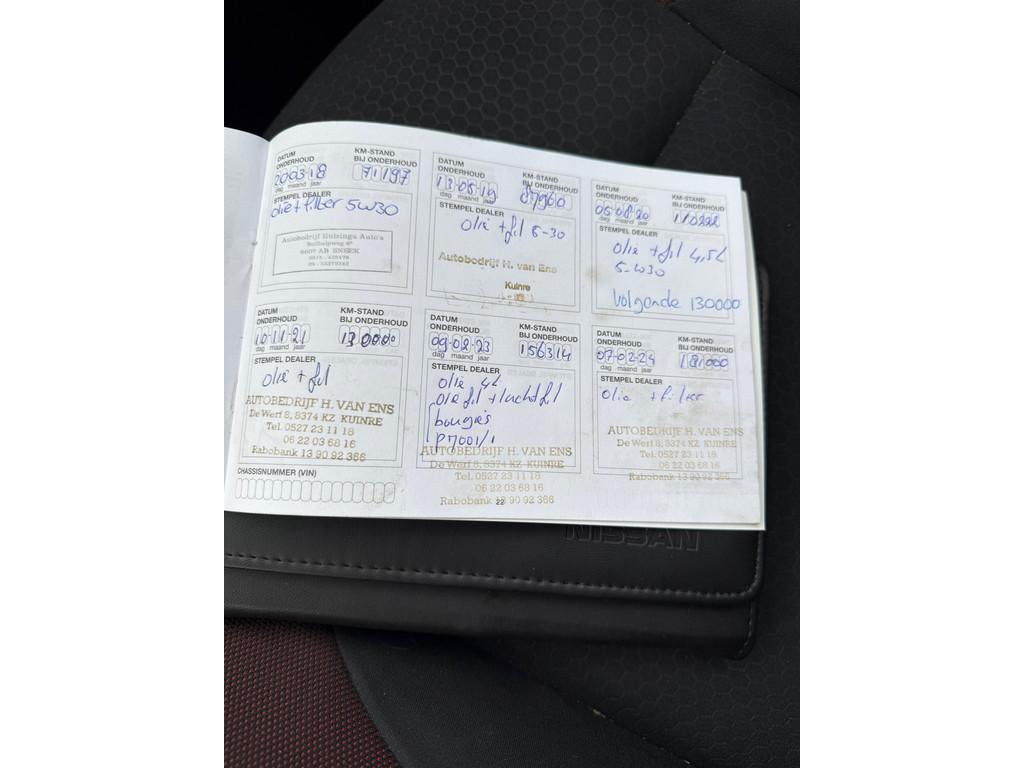 DATUM ONDERHOUD
20-03-18
dag maand jaar
KM-STAND BIJ ONDERHOUD
71197
STEMPEL DEALER
olie + filter 5W30
Autobedrijf Huizinga Auto's
SNEEK
DATUM ONDERHOUD
dag maand jaar
KM-STAND BIJ ONDERHOUD
87960
STEMPEL DEALER
Olie + fil 5-30
Autobedrijf H. van Ens
Kuinre
DATUM ONDERHOUD
05-08-20
dag maand jaar
KM-STAND BIJ ONDERHOUD
STEMPEL DEALER
Olie + fil 4,5L
5-W30
Volgende 130000
DATUM ONDERHOUD
10-11-21
dag maand jaar
KM-STAND BIJ ONDERHOUD
STEMPEL DEALER
Olie + fil
AUTOBEDRIJF H. VAN ENS
De Werf 8, 8374 KZ KUINRE
Tel. 0527 23 11 18
06 22 03 68 16
Rabobank 13 90 92 366
DATUM ONDERHOUD
09-02-23
dag maand jaar
KM-STAND BIJ ONDERHOUD
156314
STEMPEL DEALER
Olie 4L
Olie fil + lucht fil
bougies
P7001/1
AUTOBEDRIJF H. VAN ENS
De Werf 8, 8374 KZ KUINRE
Tel. 0527 23 11 18
06 22 03 68 16
Rabobank 13 90 92 366
DATUM ONDERHOUD
07-02-24
dag maand jaar
KM-STAND BIJ ONDERHOUD
181000
STEMPEL DEALER
Olie + filter
AUTOBEDRIJF H. VAN ENS
De Werf 8, 8374 KZ KUINRE
Tel. 0527 23 11 18
06 22 03 68 16
Rabobank 13 90 92 366
CHASSISNUMMER (VIN)
22
NISSAN